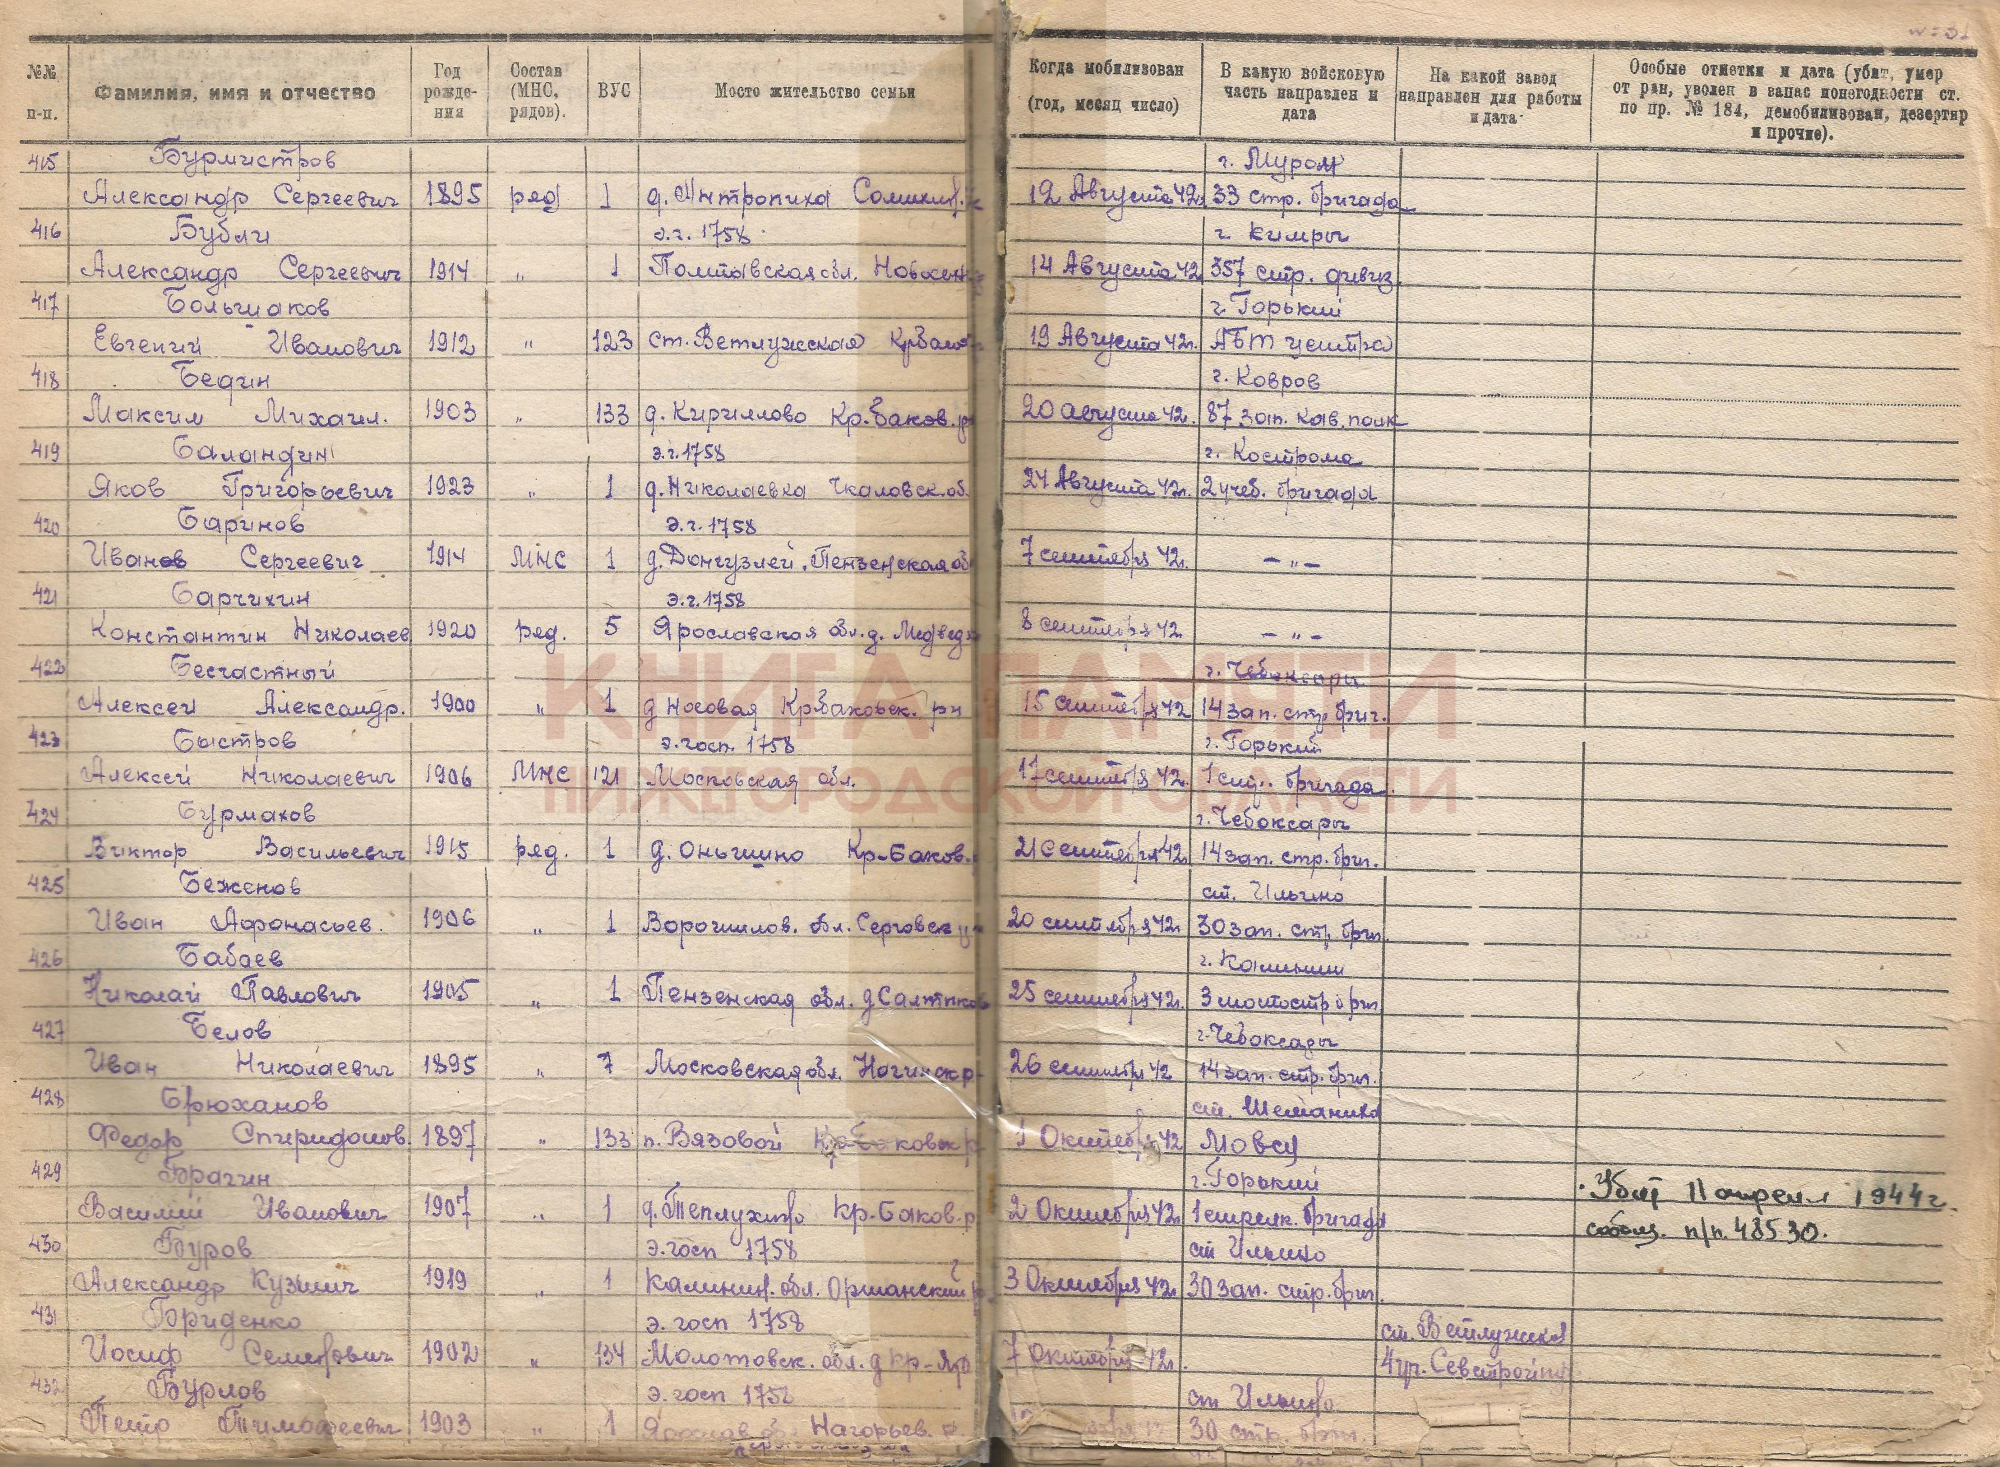 №№ п-п.
Фамилия, имя и отчество
Год рожде-ния
Состав (МНС, рядов).
ВУС
Мосто жительство семьи
Когда мобилизован (год, месяц число)
В какую войсковую часть направлен и дата
На какой завод направлен для работы и дата
Особые отметки и дата (убит, умер от ран, уволен в запас понегодности ст. по пр. № 184, демобилизован, дезертир и прочие).
415 Бурмистров г. Муром
Александр Сергеевич 1895 ряд 1 д. Антропиха 12 Августа 42г. 33 стр. бригада
416 Бубли э.г. 1758 г. Кимры
Александр Сергеевич 1914 " 1 Полтавская обл. 14 Августа 42 357 стр. дивиз.
417 Большаков г. Горький
Евгений Иванович 1912 " 123 ст. Ветлужская 19 Августа 42г. АБТ центра
418 Бедин г. Ковров
Максим Михаил. 1903 " 133 д. Кириллово Кр.баков. р 20 августа 42г. 87 зап. кав. полк
419 Баландин э.г. 1758 г. Кострома
Яков Григорьевич 1923 " 1 д. Николаевка Чкаловск. об. 24 Августа 42г. 2 учеб. бригада
420 Баринов э.г. 1758
Иванов Сергеевич 1914 МНС 1 д. Донгузлей, Пензенская об 7 сентября 42г. — " —
421 Барчихин э.г. 1758
Константин Николаев 1920 ряд. 5 Ярославская обл. д. 8 сентября 42 — " —
422 Бесчастный г. Чебоксары
Алексей Александр. 1900 " 1 д Носовая Кр.баковск. рн 15 сентября 42 14 зап. стр. бриг.
423 Быстров э. госп. 1758 г. Горький
Алексей Николаевич 1906 МНС 121 Московская обл. 17 сентября 42г. 1 стр. бригада
424 Бурмахов г. Чебоксары
Виктор Васильевич 1915 ряд. 1 д. Оньшино Кр-Баков. 21 Сентября 42г. 14 зап. стр. бриг.
425 Беженов ст. Ильино
Иван Афонасьев. 1906 " 1 Ворошилов. обл. 20 сентября 42г. 30 зап. стр. бриг.
426 Бабаев г. Калинин
Николай Павлович 1905 " 1 Пензенская обл. 25 сентября 42г. 3
427 Белов г. Чебоксары
Иван Николаевич 1895 " 7 Московская обл. Ногинск р- 26 сентября 42 14 зап. стр. бриг.
428 Брюханов ст. Шеманиха
Федор Спиридонов. 1897 " 133 п. Вязовой 1 Октября 42
429 Брагин г. Горький
Василий Иванович 1907 " 1 д. Кр.-Баков. р 2 Октября 42г. 1 стрелк. бригада
Убит 11 апреля 1944 г.
сообщ. п/п. 48530.
430 Буров э. госп 1758 ст Ильино
Александр Кузмич 1919 " 1 Калинин. обл. Оршанский р 3 Октября 42г. 30 зап. стр. бриг.
431 Бриденко э. госп 1758 ст. Ветлужская
Иосиф Семенович 1902 " 134 Молотовск. обл. 7 октября 42г.
432 Бурлов э. госп 1758 ст Ильино
Петр Тимофеевич 1903 " 1 Ярослав. об. Нагорьев. р. 30 стр. бриг.
КНИГА ПАМЯТИ
НИЖЕГОРОДСКОЙ ОБЛАСТИ